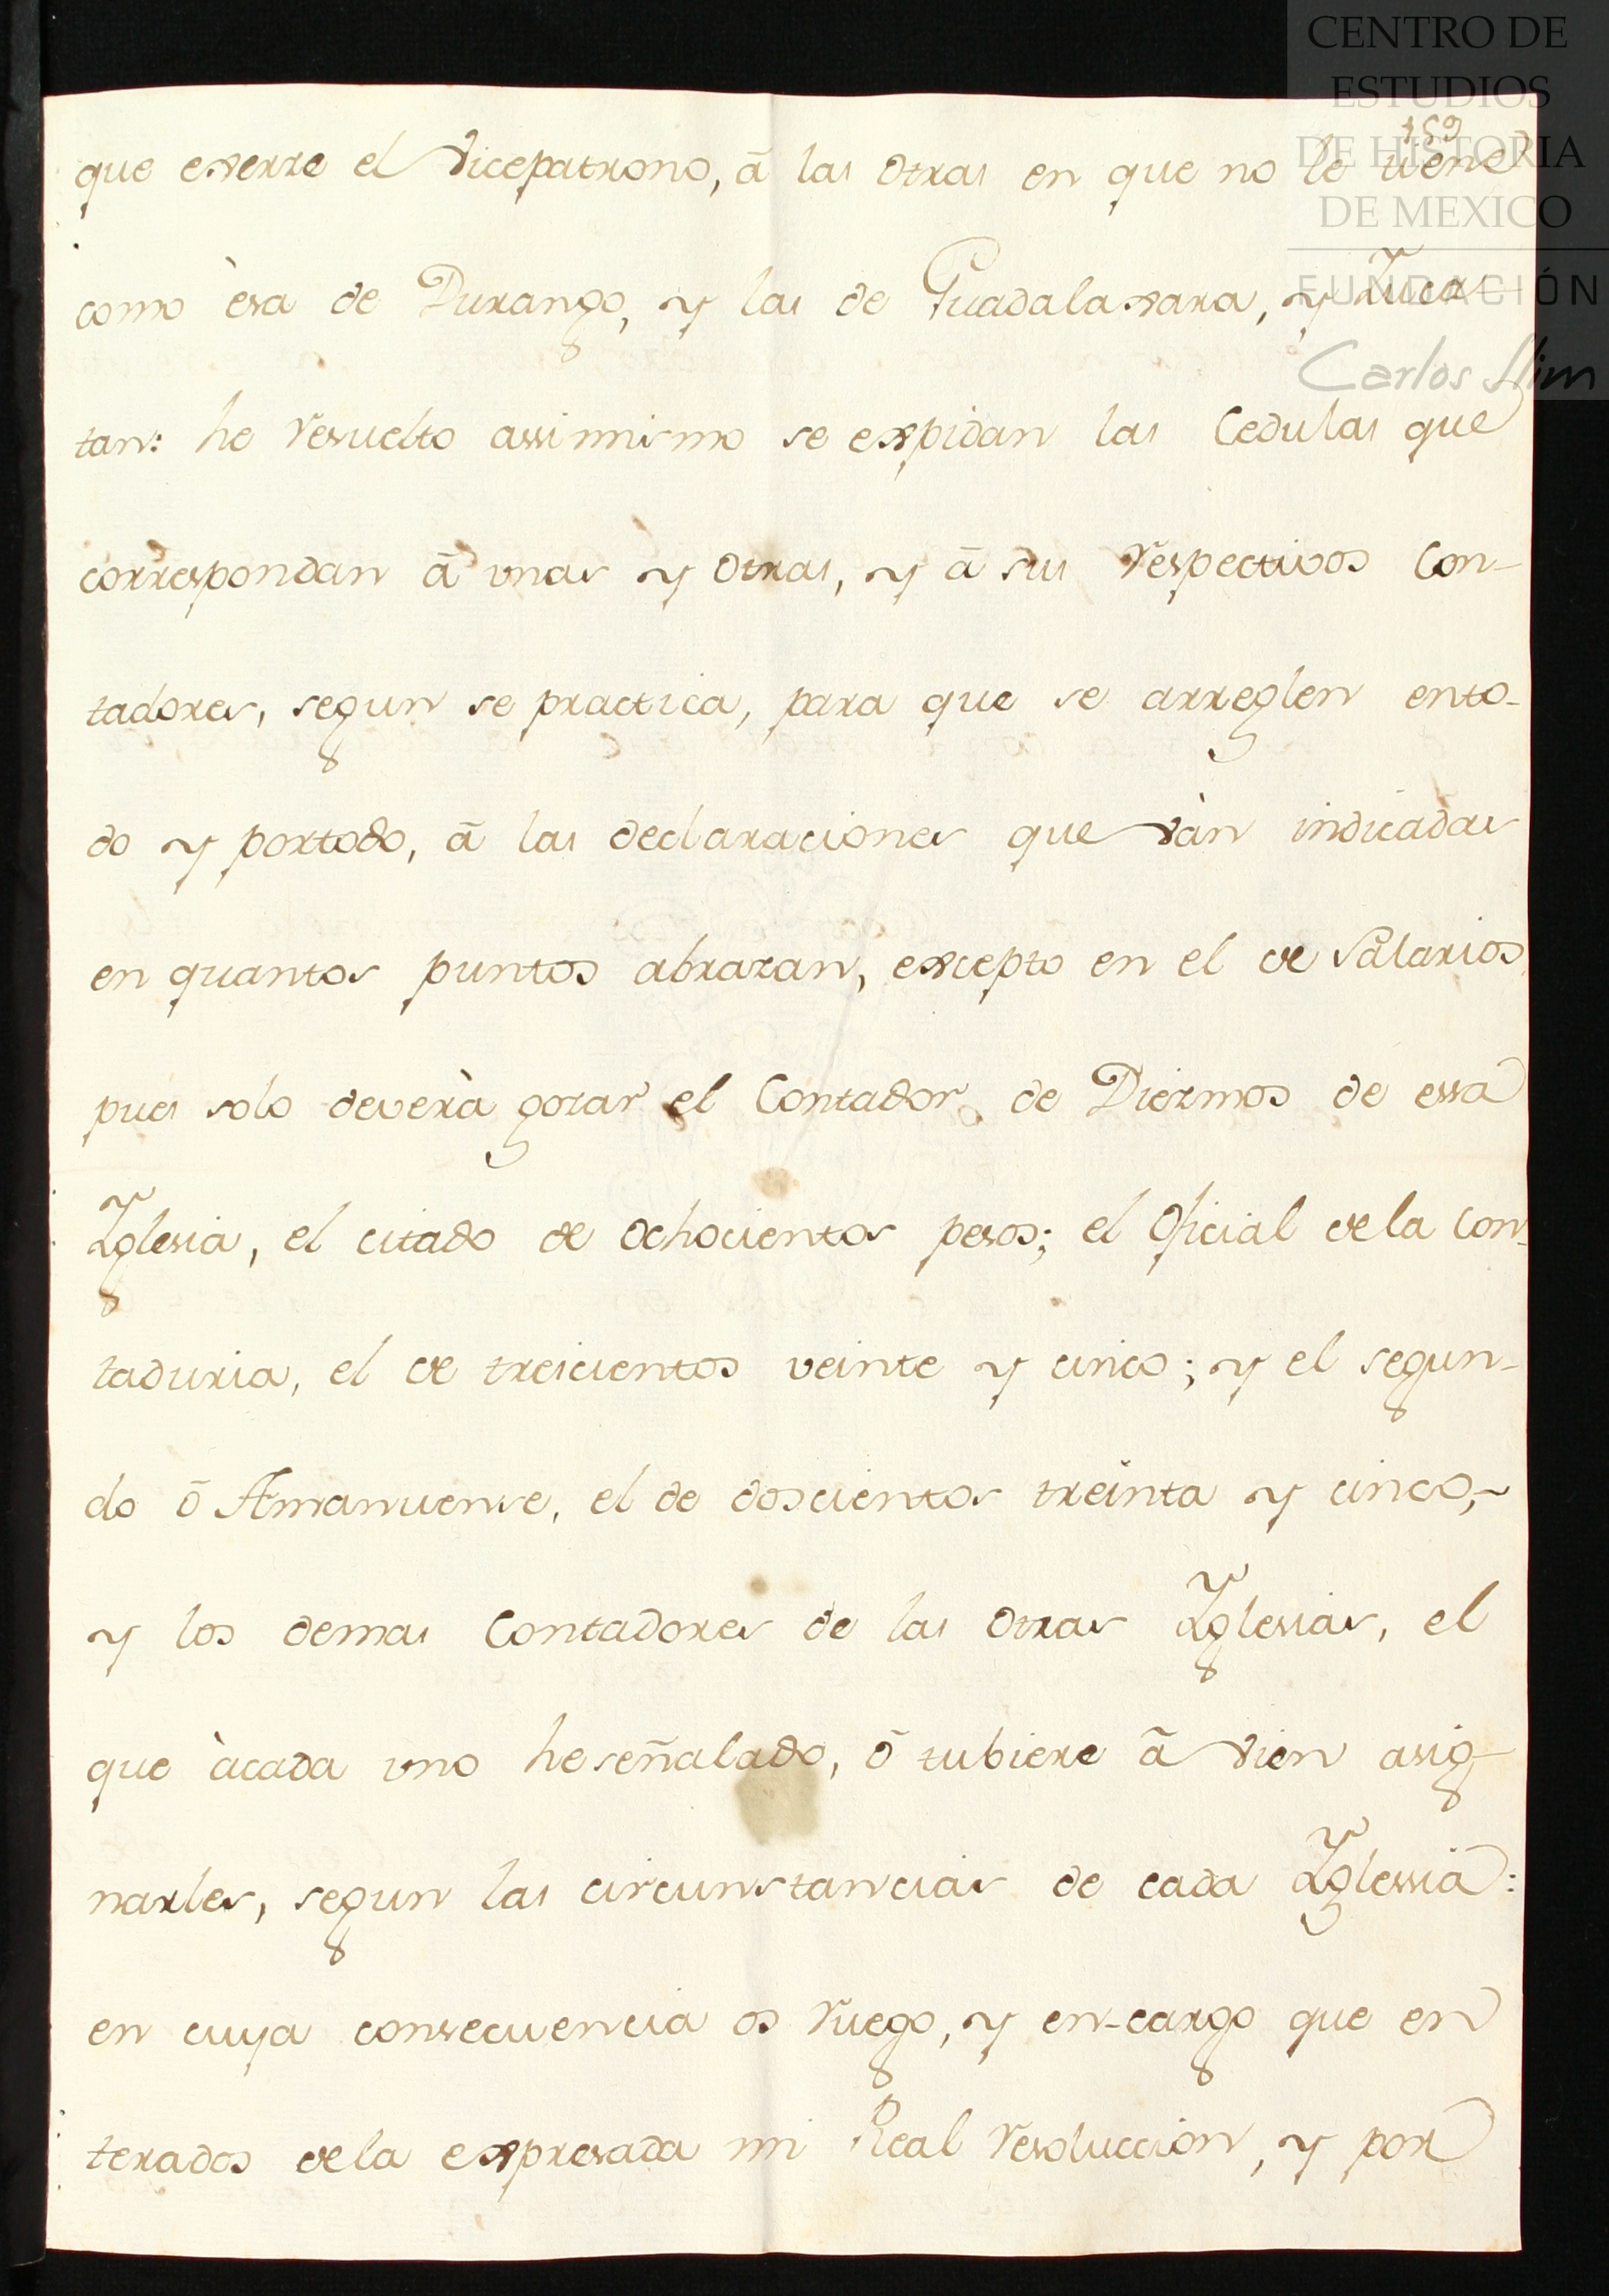 CENTRO DE
ESTUDIOS
DE HISTORIA
DE MEXICO
FUNDACIÓN
Carlos Slim
159
que exerze el Vicepatrono, ā las otras en que no le tiene
como èsa de Durango, y las de Guadalaxara, y Yuca-
tan: he resuelto assimismo se expidan las Cedulas que
correspondan ā unas y otras, y ā sus respectivos Con-
tadores, segun se practica, para que se arreglen ento-
do y portodo, ā las declaraciones que vàn indicadas
en quantos puntos abrazan, excepto en el de Salarios,
pues solo deverà gozar el Contador de Diezmos de essa
Yglesia, el citado de ochocientos pesos; el Oficial dela Con-
taduria, el de treicientos veinte y cinco; y el segun-
do ō Amanuense, el de doscientos treinta y cinco,~
y los demas Contadores de las otras Yglesias, el
que àcada uno heseñalado, ō tubiere ā vien asig-
narles, segun las circunstancias de cada Yglessia:
en cuya consecuencia os ruego, y en-cargo que en
terados dela expresada mi Real resoluccion, y por